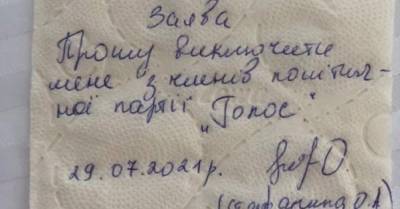 Заява
Прошу виключити
мене з членів політич-
ної партії
"Голос".
29.07.2021р.
О.А)